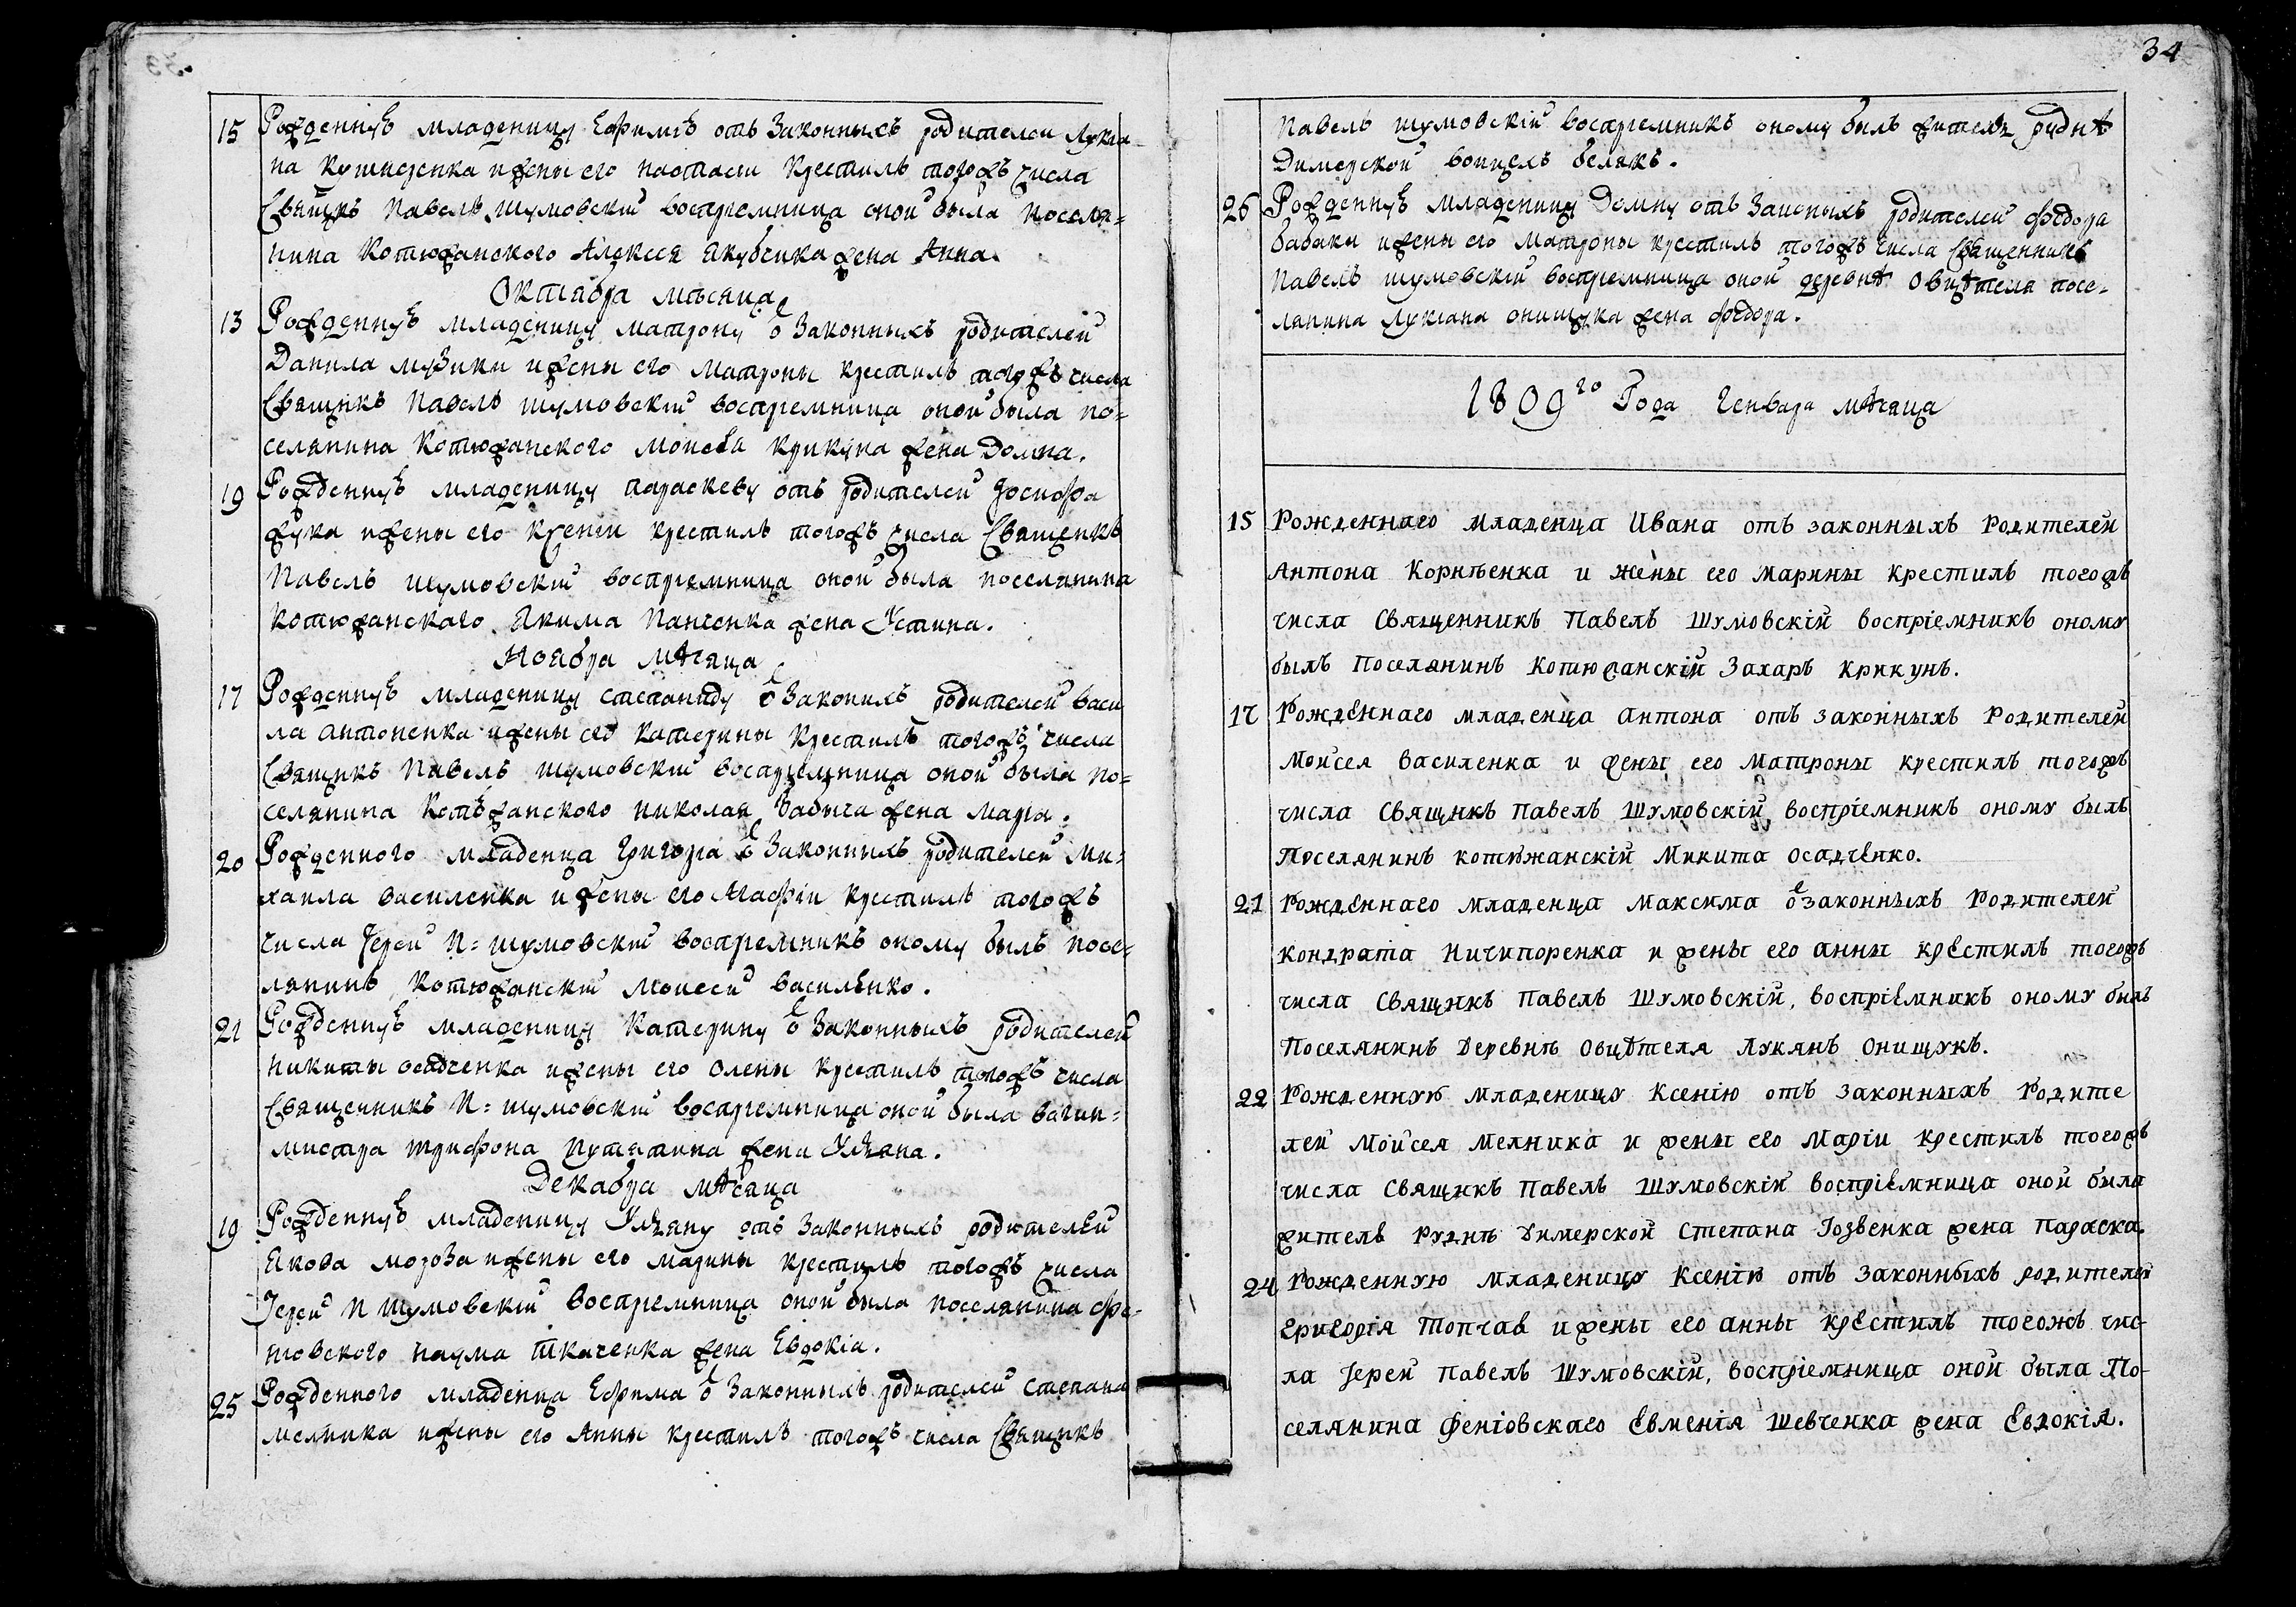 34
15 Рожденнꙋю младеницу Ефимію отъ Законныхъ родителей Лукіа
на Кушнѣренка и жены его настасіи Крестилъ тогожъ числа
Свящнкъ Павелъ Шумовскій воспріемница оной была поселя-
нина Котюжанского Алексея Якубенка жена Анна.
Октября мѣсяца
13 Рожденнꙋю младеницу матрону ѿ Законныхъ родителей
Данила музики и жены его Матроны крестилъ тогожъ числа
Свящнкъ Павелъ шумовскій воспріемница оной была по-
селянина Котюжанского Моисея Крикуна жена Домна.
19 Рожденнꙋю младеницу параскеву отъ родителей Іосифа
жука и жены его Ксеніи крестилъ тогожъ числа Священкъ
Павелъ шумовскій воспріемница оной была поселянина
котюжанскаго Якима Панченка жена Устина.
Ноября мѣсяца
17 Рожденнꙋю младеницу степаниду ѿ Законихъ родителей васи
ла антоненка и жены его Катерины Крестилъ тогожъ числа
Свящнкъ Павелъ шумовскій воспріемница оной была по-
селянина Котюжанского николая бабыча жена Марія.
20 Рожденного младенца григорія ѿ Законныхъ родителей Ми-
хаила василенка и жены его Агафіи крестилъ тогожъ
числа Іерей П= шумовскій воспріемникъ оному былъ посе-
лянинъ Котюжанскій Моисей василѣнко.
21 Рожденнꙋю младеницу Катерину ѿ Законныхъ родителей
никиты осадченка и жены его Олены крестилъ тогожъ числа
Священникъ П= шумовскій воспріемница оной была вахми-
мистра трифона Путятина жена Ульяна.
Декабря мѣсяца
19 Рожденнꙋю младеницу Ульяну отъ Законныхъ родителей
Якова мороза и жены его марины крестилъ тогожъ числа
Іерей П Шумовскій воспріемница оной была поселянина фе-
ніовского наума ткаченка жена Евдокіа.
25 Рожденного младенца Ефима ѿ Законныхъ родителей степана
мелника и жены его Анны крестилъ тогожъ числа Свящнкъ
Павелъ шумовскій воспріемникъ оному былъ житель руднѣ
Димерской беликъ.
26 Рожденнꙋю младеницу Домну отъ Законыхъ родителей федора
бабаки и жены его матроны крестилъ тогожъ числа Священникъ
Павелъ шумовскій воспріемница оной деревнѣ Овцѣтеля посе-
лянина Лукіана онищука жена федора.
1809го Года Генваря мѣсяца
15 Рожденнаго младенца Ивана отъ законныхъ родителей
Антона Корнѣенка и жены его марины крестилъ тогожъ
числа Священникъ Павелъ Шумовскій воспріемникъ оному
былъ поселянинъ Котюжанскій Захаръ Крикунъ.
17 Рожденнаго младенца антона отъ законныхъ родителей
Моисея василенка и жены его Матроны крестилъ тогожъ
числа Свящнкъ Павелъ Шумовскій воспріемникъ оному былъ
Поселянинъ котюжанскій Микита осадченко.
21 Рожденнаго младенца Максима ѿ законныхъ Родителей
кондрата Ничипоренка и жены его анны крестилъ тогожъ
числа Свящнкъ Павелъ Шумовскій, воспріемникъ оному былъ
Поселянинъ деревнѣ овцѣтеля лукянъ онищукъ.
22 Рожденную младеницу Ксенію отъ законныхъ Родите
лей Моисея мелника и жены его Маріи крестилъ тогожъ
числа Свящнкъ Павелъ Шумовскій воспріемница оной была
жителя руднѣ димерской степана Іозвенка жена параска.
24 Рожденную младеницу Ксенію отъ законныхъ родителей
григорія топчав и жены его анны крестилъ тогожъ чис-
ла Іерей Павелъ Шумовскій, воспріемница оной была По-
селянина феніовскаго Евменія шевченка жена Евдокія.